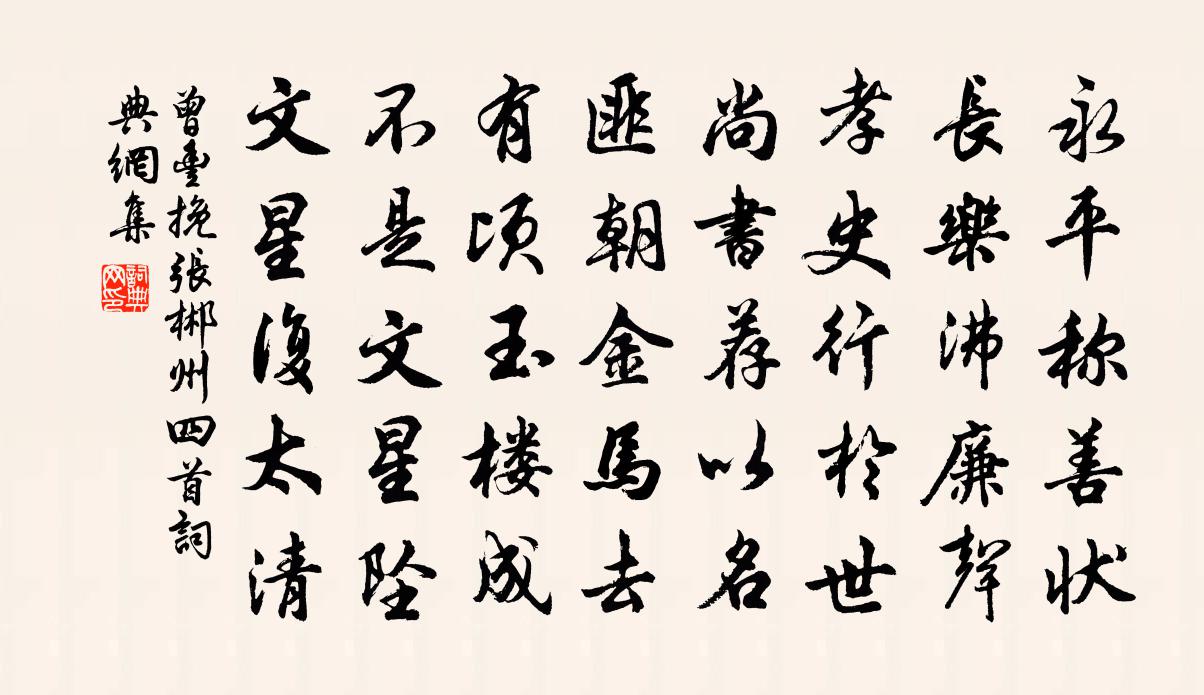 永平称善状
長樂沸廉聲
孝史行於世
尚書荐以名
匪朝金馬去
有頃玉楼成
不是文星坠
文星復太清
曾豊挽張郴州四首詞
典網集
詞典网印